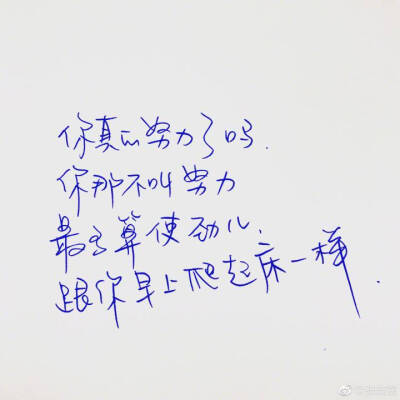 你真的努力了吗.
你那不叫努力
最多算使劲儿.
跟你早上爬起床一样.